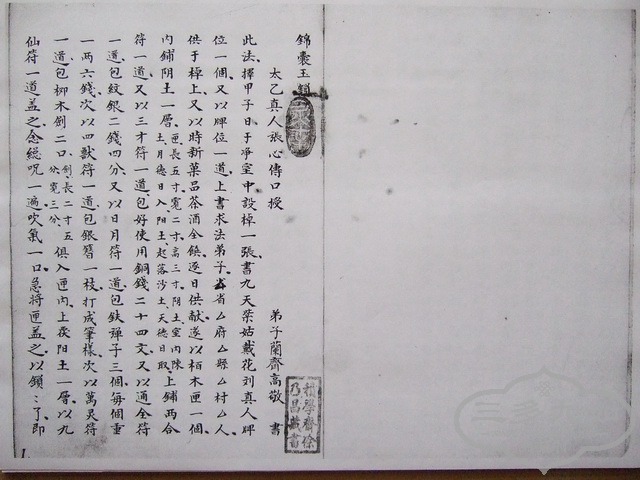 錦囊玉鎖
太乙真人張心傳口授 弟子蘭齊高敬書
此法擇甲子日于凈室中設棹一張書九天紫姑戴花刘真人牌
位一個又以牌位一道上書求法弟子厶省厶府厶縣厶村厶人
供于棹上又以時新菓品茶酒全饒逐日供献遂以栢木匣一個
內鋪阴土一層匣長五寸寬二寸高三寸阴土室內陳土月德日入阳土起落沙土天德日取上鋪两合
符一道又以三才符一道包好使用銅錢二十四文又以通全符
一道包紋銀二錢四分又以日月符一道包鈇彈子三個每個重
一两六錢次以四獸符一道包銀簪一枝打成筆樣次以萬灵符
一道包柳木劍二口劍長二寸五分寬三分俱入匣內上蓌阳土一層以九
仙符一道盖之念總咒一遍吹氣一口急將匣盖之以鎖鎖了即
積學齋徐乃昌藏書
1.